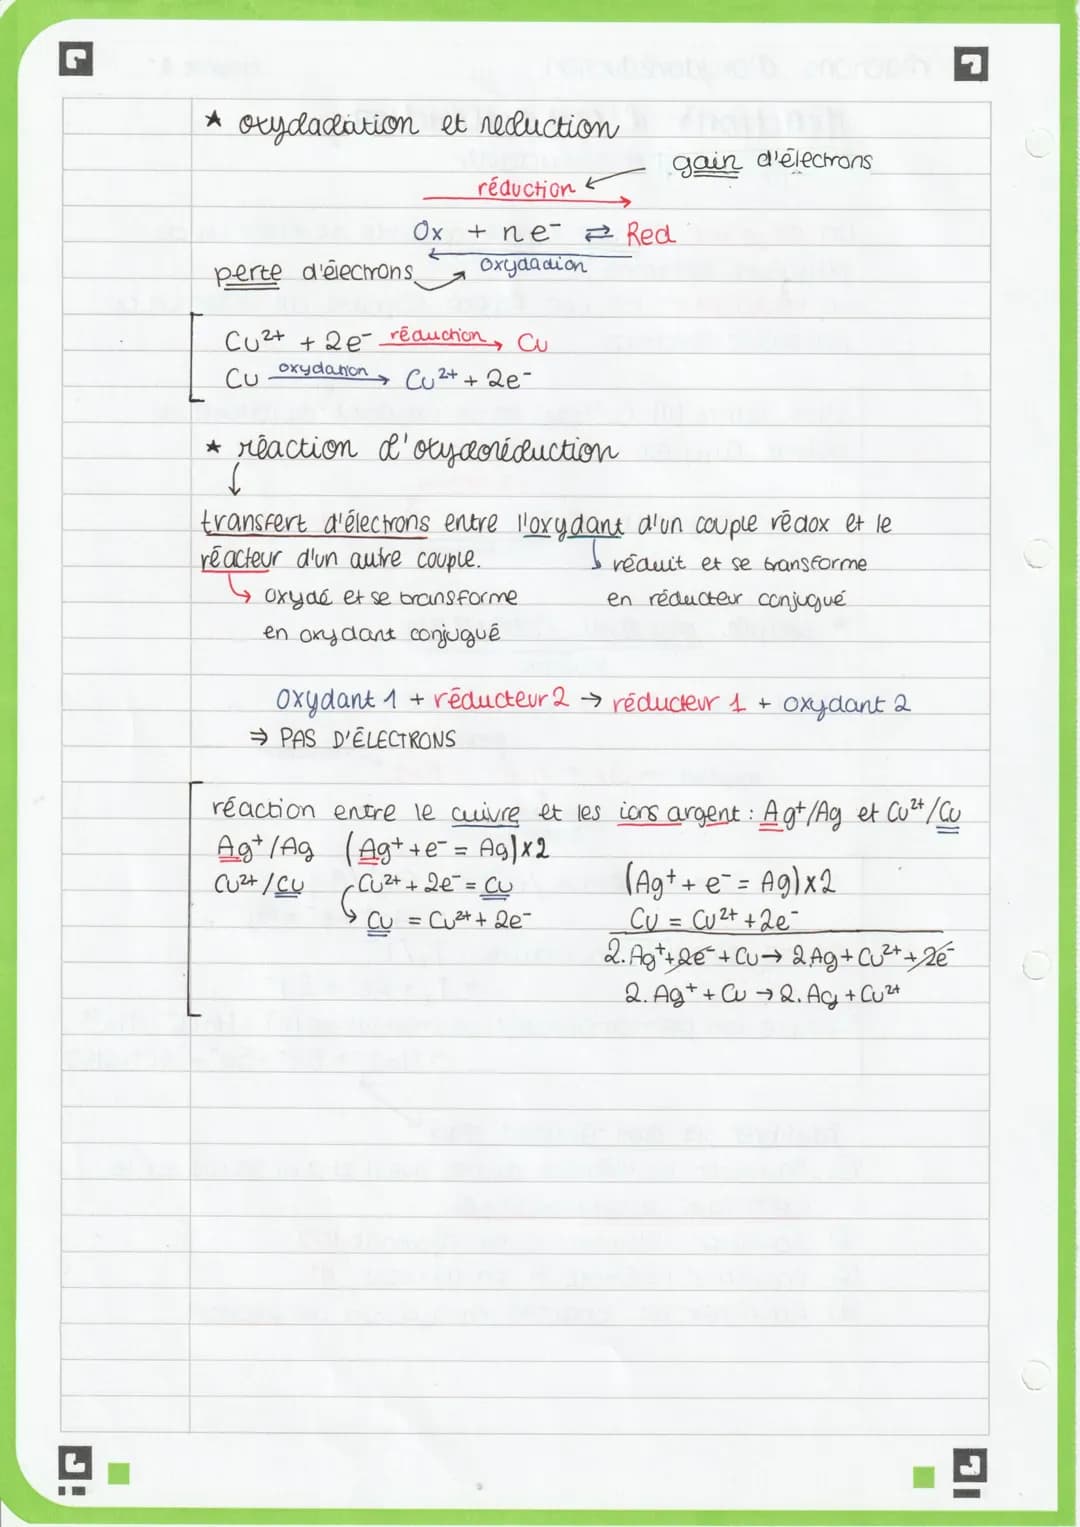 ★ oxydadation et reduction
gain d'électrons
réduction
Ox + ne⁻ ⇄ Red
oxydadion
perte d'électrons
Cu²⁺ + 2e⁻ réduction → Cu
Cu oxydation → Cu²⁺ + 2e⁻
★ réaction d'oxydoréduction
↓
transfert d'électrons entre l'oxydant d'un couple rédox et le
réacteur d'un autre couple.
↳ réduit et se transforme
en réducteur conjugué
↳ oxydé et se transforme
en oxydant conjugué
Oxydant 1 + réducteur 2 → réducteur 1 + oxydant 2
⇒ PAS D'ÉLECTRONS
réaction entre le cuivre et les ions argent : Ag⁺/Ag et Cu²⁺/Cu
Ag⁺/Ag (Ag⁺ + e⁻ = Ag)x2
Cu²⁺/Cu Cu²⁺ + 2e⁻ = Cu
↳ Cu = Cu²⁺ + 2e⁻
(Ag⁺ + e⁻ = Ag)x2
Cu = Cu²⁺ + 2e⁻
2.Ag⁺ + 2e⁻ + Cu → 2Ag + Cu²⁺ + 2e⁻
2.Ag⁺ + Cu → 2.Ag + Cu²⁺